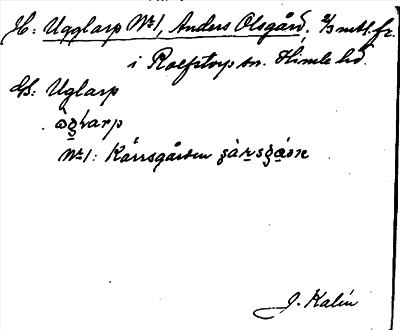 H: Ugglarp Nr 1, Anders Olsgård, 2/3 mtl. fr.
i Rolfstorp sn. Himle hd.
Us: Uglarp
Nr 1: Kärrsgården
J. Kalén